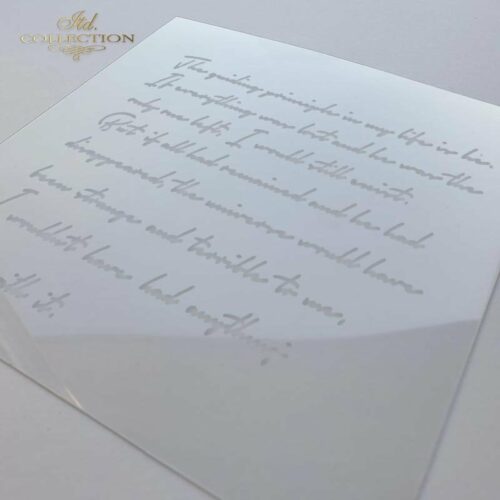 Itd.
COLLECTION
The guiding principle in my life is he,
If everything was lost and he were the
only one left, I would still exist.
But if all had remained and he had
disappeared, the universe would have
been strange and terrible to me,
I wouldn't have had anything
with it.